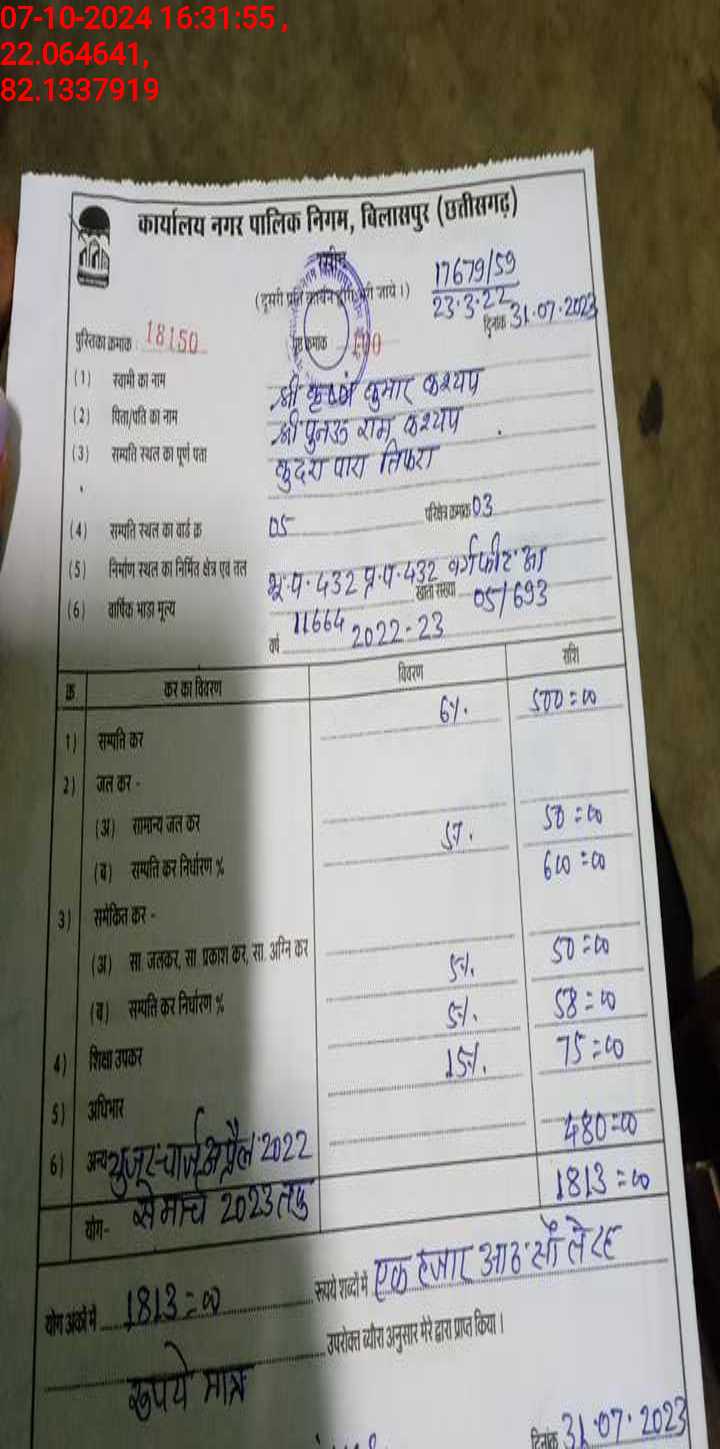 07-10-2024 16:31:55 ,
22.064641,
82.1337919
कार्यालय नगर पालिक निगम, बिलासपुर (छत्तीसगढ़)
रसीद
(दूसरी प्रति कार्बन द्वारा भरी जाये।)
17679/59
23.3.22
पुस्तिका क्रमांक 18150
पृष्ठ क्रमांक
दिनांक 31.07.2023
(1) स्वामी का नाम श्री कृष्ण कुमार कश्यप
(2) पिता/पति का नाम श्री पुनऊ राम कश्यप
(3) सम्पति स्थल का पूर्ण पता कुदरा पारा तिफरा
(4) सम्पति स्थल का वार्ड क्र 05 परिक्षेत्र क्रमांक 03
(5) निर्माण स्थल का निर्मित क्षेत्र एवं तल भू.प. 432 प्र.प. 432 वर्गफीट
(6) वार्षिक भाड़ा मूल्य 11664 खाता संख्या 05/693
वर्ष 2022-23
क्र कर का विवरण विवरण राशि
1) सम्पति कर 6%. 500=00
2) जल कर -
(अ) सामान्य जल कर 5%. 50=00
(ब) सम्पति कर निर्धारण % 600=00
3) समेकित कर -
(अ) सा. जलकर, सा. प्रकाश कर, सा. अग्नि कर 5%. 50=00
(ब) सम्पति कर निर्धारण % 5%. 58=00
4) शिक्षा उपकर 15%. 75=00
5) अधिभार
6) अन्य यूजर चार्ज अप्रैल 2022 480=00
योग- से मार्च 2023 तक 1813=00
योग अंकों में 1813=00 रूपये शब्दों में एक हजार आठ सौ तेरह
रूपये मात्र उपरोक्त ब्यौरा अनुसार मेरे द्वारा प्राप्त किया।
दिनांक 31.07.2023